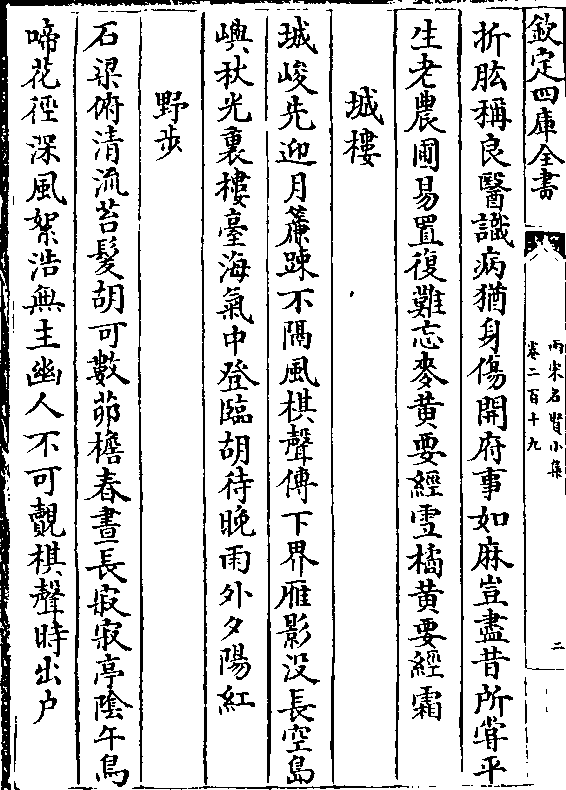 欽定四庫全書
兩宋名賢小集
卷二百十九
二
折肱稱良醫識病猶身傷開府事如麻豈盡昔所嘗平
生老農圃易置復難忘麥黄要經雪橘黄要經霜
城樓
城峻先迎月簾踈不隔風棋聲傳下界雁影没長空島
嶼秋光裏樓臺海氣中登臨胡待晚雨外夕陽紅
野步
石梁俯清流苔髮胡可數茆檐春晝長寂寂亭陰午鳥
啼花徑深風絮浩無主幽人不可覿棋聲時出户